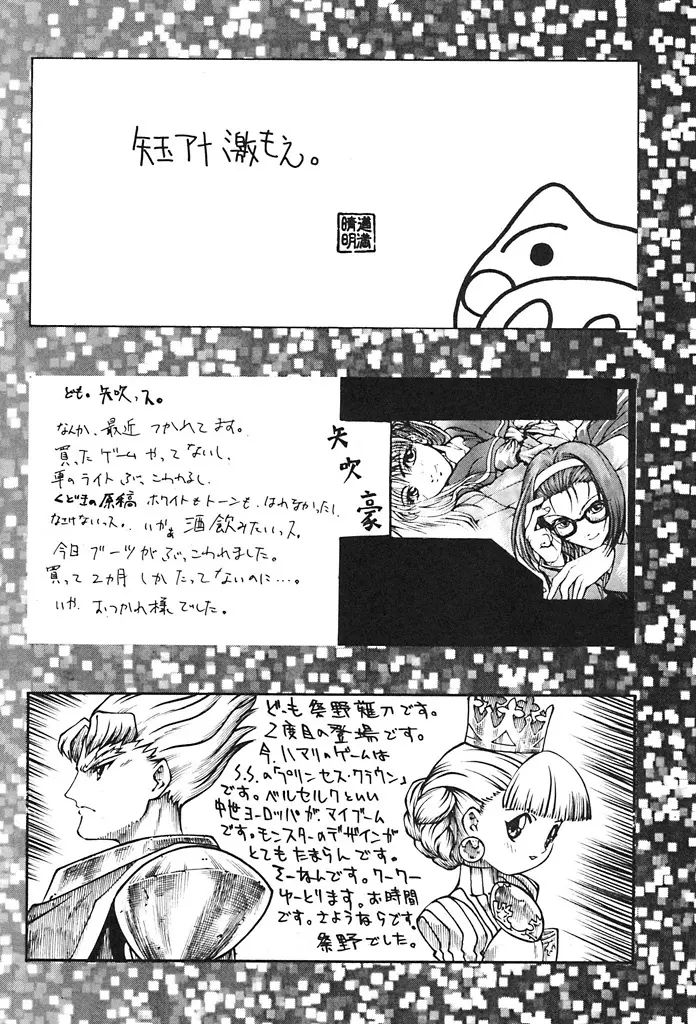 短アナ 激もえ。
道満
晴明
ども。矢吹っス。
なんか、最近 つかれてます。
買ったゲーム やってないし、
車のライト ぶっこわれるし、
くどまの原稿 ホワイトもトーンも、はれなかったし、
なさけないっス。いかぁ 酒飲みたいっス。
今日 ブーツが ぶっこわれました。
買って 2カ月 しかたってないのに…。
いか おつかれ様でした。
矢吹豪
ども祭野薙刀です。
2度目の登場です。
今、ハマリのゲームは
S.S.の「プリンセス・クラウン」
です。ベルセルクといい
中世ヨーロッパがマイブーム
です。モンスターのデザインが
とてもたまらんです。
そーなんです。クークー
ゆーとります。お時間
です。さようならです。
祭野でした。